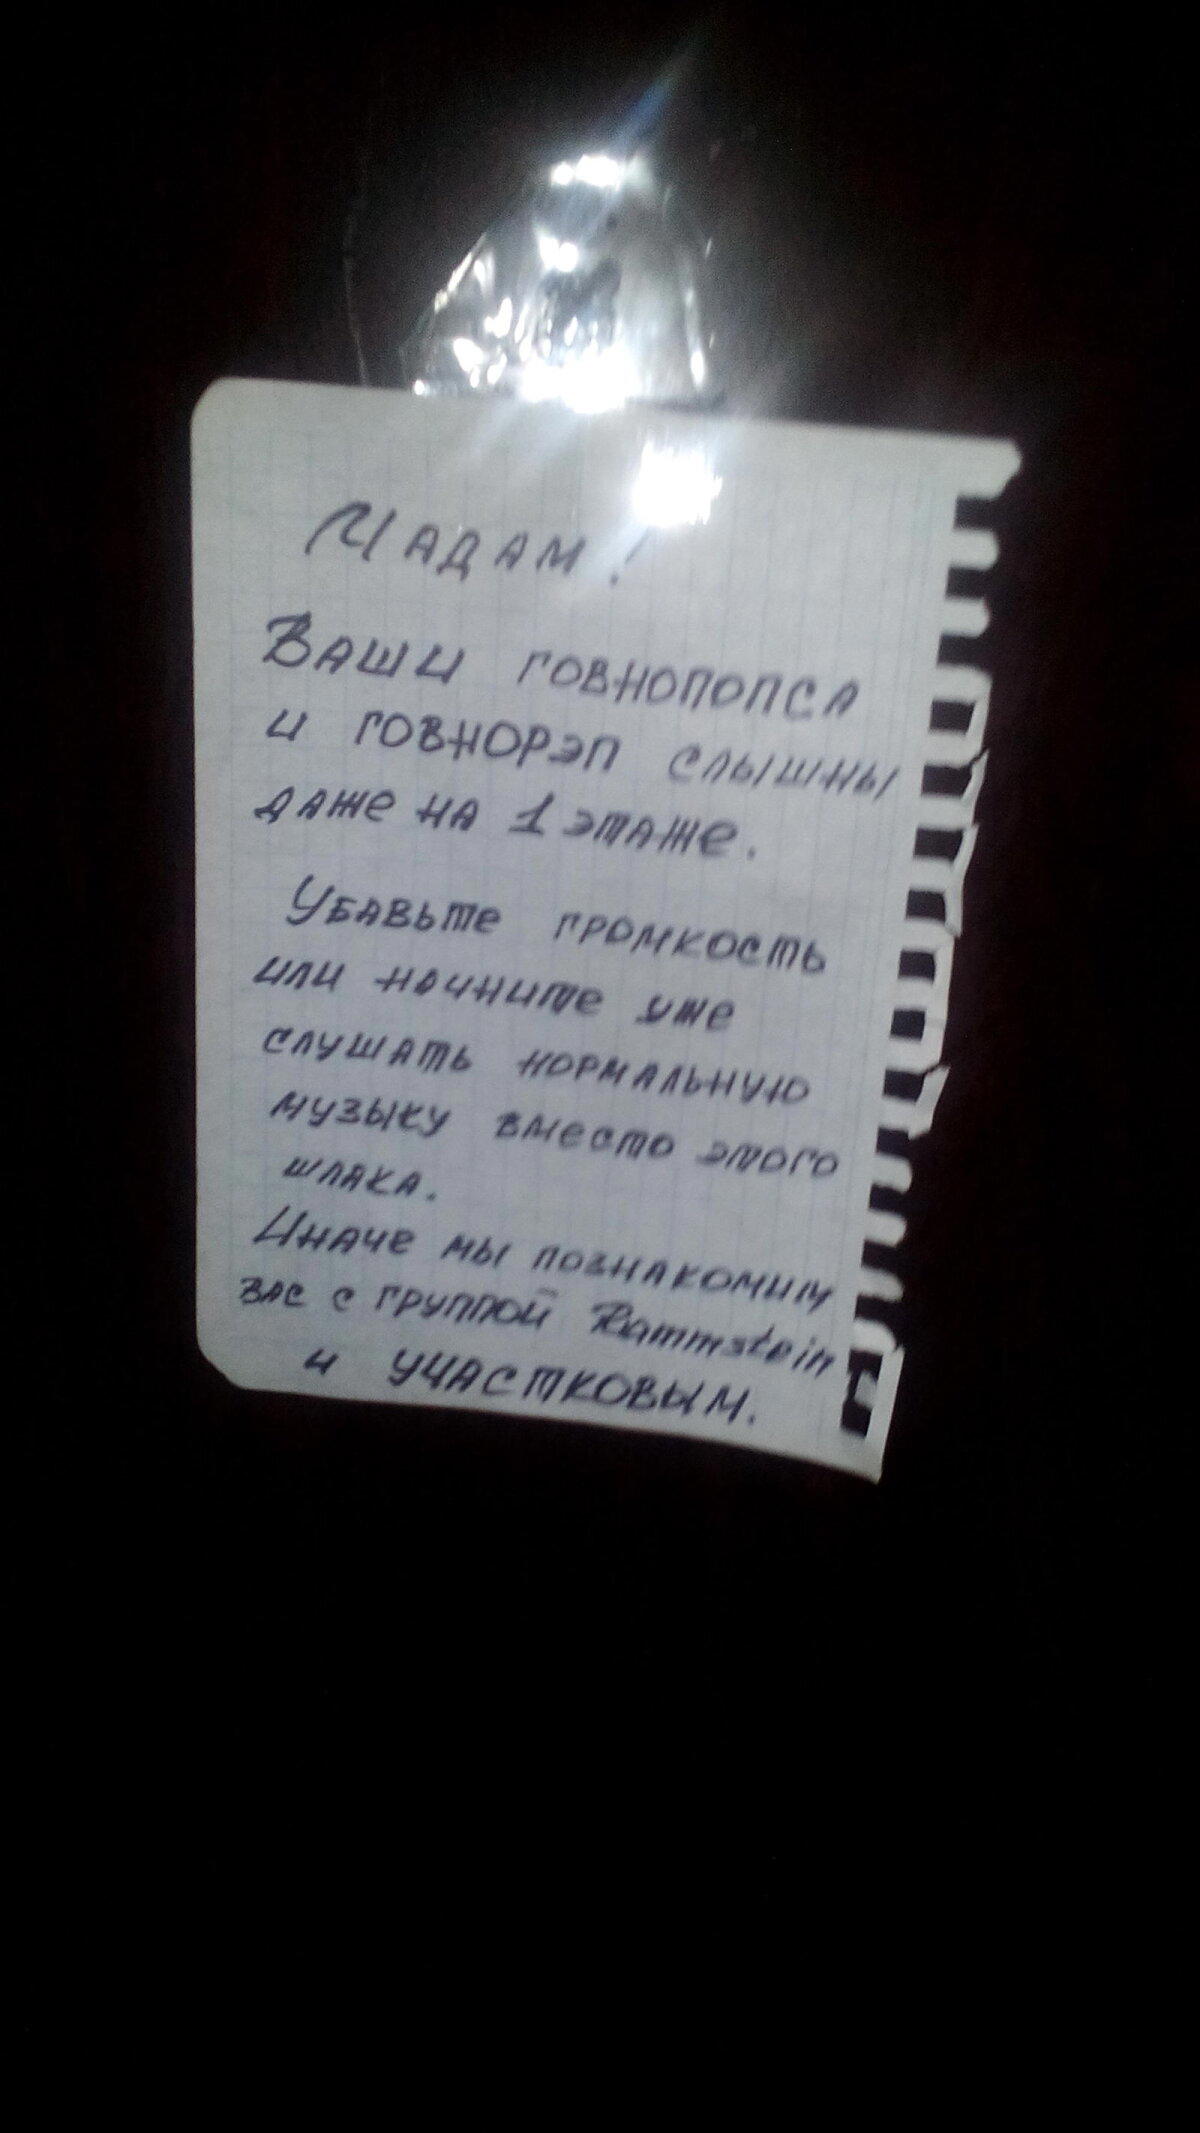 Мадам!
Ваши говнопопса
и говнорэп слышны
даже на 1 этаже.
Убавьте громкость
или начните уже
слушать нормальную
музыку вместо этого
шлака.
Иначе мы познакомим
вас с группой Rammstein
и участковым.